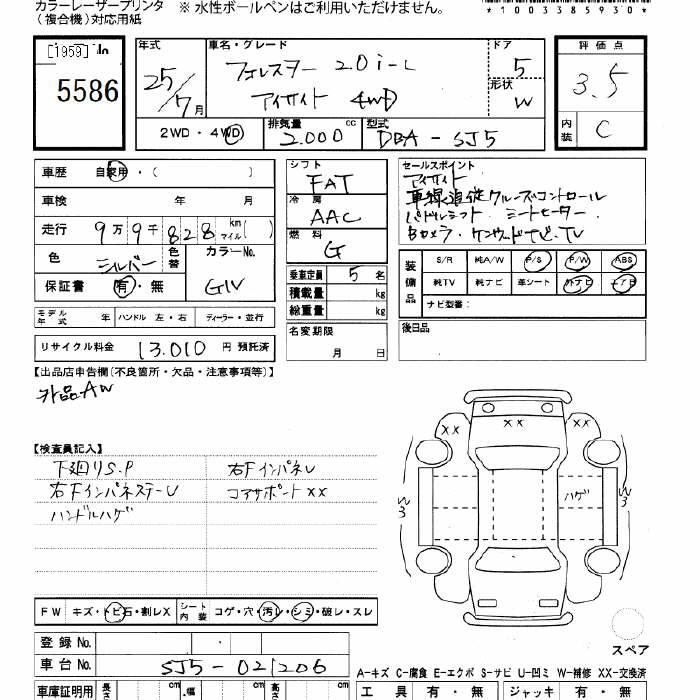 カラーレーザープリンタ ※ 水性ボールペンはご利用いただけません。
（複合機）対応用紙
*1003385930*
[1959] No
5586
年式 25/7月
車名・グレード
フォレスター 2.0i-L
アイサイト 4WD
ドア 5
形状 W
評価点 3.5
内装 C
2WD・4WD
排気量 2.000 cc
型式 DBA-SJ5
車歴 自家用・( )
車検 年 月
走行 9万9千828 km マイル( )
色 シルバー 色替
カラーNo. G1V
保証書 有・無
モデル年式 年 ハンドル 左・右 ディーラー・並行
リサイクル料金 13.010 円 預託済
シフト FAT
冷房 AAC
燃料 G
乗車定員 5名
積載量 kg
総重量 kg
名変期限 月 日
セールスポイント
アイサイト
車線追従クルーズコントロール
パドルシフト シートヒーター
Bカメラ・ケンウッドナビ・TV
装備品
S/R 純A/W P/S P/W ABS
純TV 純ナビ 革シート 外ナビ エアB
ナビ型番：
後日品
【出品店申告欄(不良箇所・欠品・注意事項等)】
外品AW
【検査員記入】
下廻りS.P 右FインパネU
右FインパネステーU コアサポートXX
ハンドルハゲ
XX XX
W3 ハゲ W3
スペア
FW キズ・トビ石・割レX シート内装 コゲ・穴・汚レ・シミ・破レ・スレ
登録No.
車台No. SJ5-021206
A-キズ C-腐食 E-エクボ S-サビ U-凹ミ W-補修 XX-交換済
車庫証明用 長さ cm 幅 cm 高さ cm
工具 有・無 ジャッキ 有・無